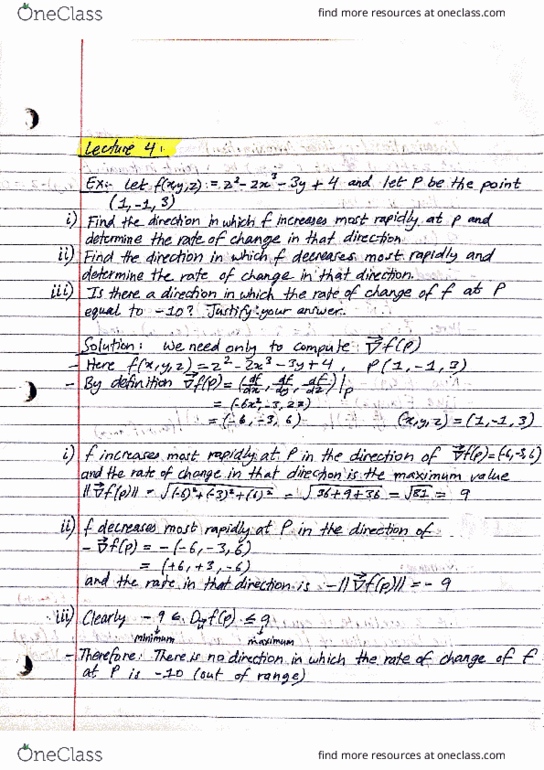 OneClass
find more resources at oneclass.com
Lecture 4:
Ex: Let f(x,y,z) = z²-2x³-3y+4 and let P be the point
(1,-1,3)
i) Find the direction in which f increases most rapidly at p and
determine the rate of change in that direction
ii) Find the direction in which f decreases most rapidly and
determine the rate of change in that direction.
iii) Is there a direction in which the rate of change of f at P
equal to -10? Justify your answer.
Solution: We need only to compute: ∇f(p)
- Here f(x,y,z)=z²-2x³-3y+4, P(1,-1,3)
- By definition ∇f(p) = (df/dx, df/dy, df/dz)|p
= (-6x², -3, 2z)
= (-6, -3, 6) (x,y,z) = (1,-1,3)
i) f increases most rapidly at P in the direction of ∇f(p)=(-6,-3,6)
and the rate of change in that direction is the maximum value
||∇f(p)|| = √(-6)²+(-3)²+(6)² = √36+9+36 = √81 = 9
ii) f decreases most rapidly at P in the direction of
-∇f(p) = -(-6,-3,6)
= (+6,+3,-6)
and the rate in that direction is -||∇f(p)|| = -9
iii) Clearly -9 ≤ Duf(p) ≤ 9
minimum maximum
- Therefore: There is no direction in which the rate of change of f
at P is -10 (out of range)
OneClass
find more resources at oneclass.com